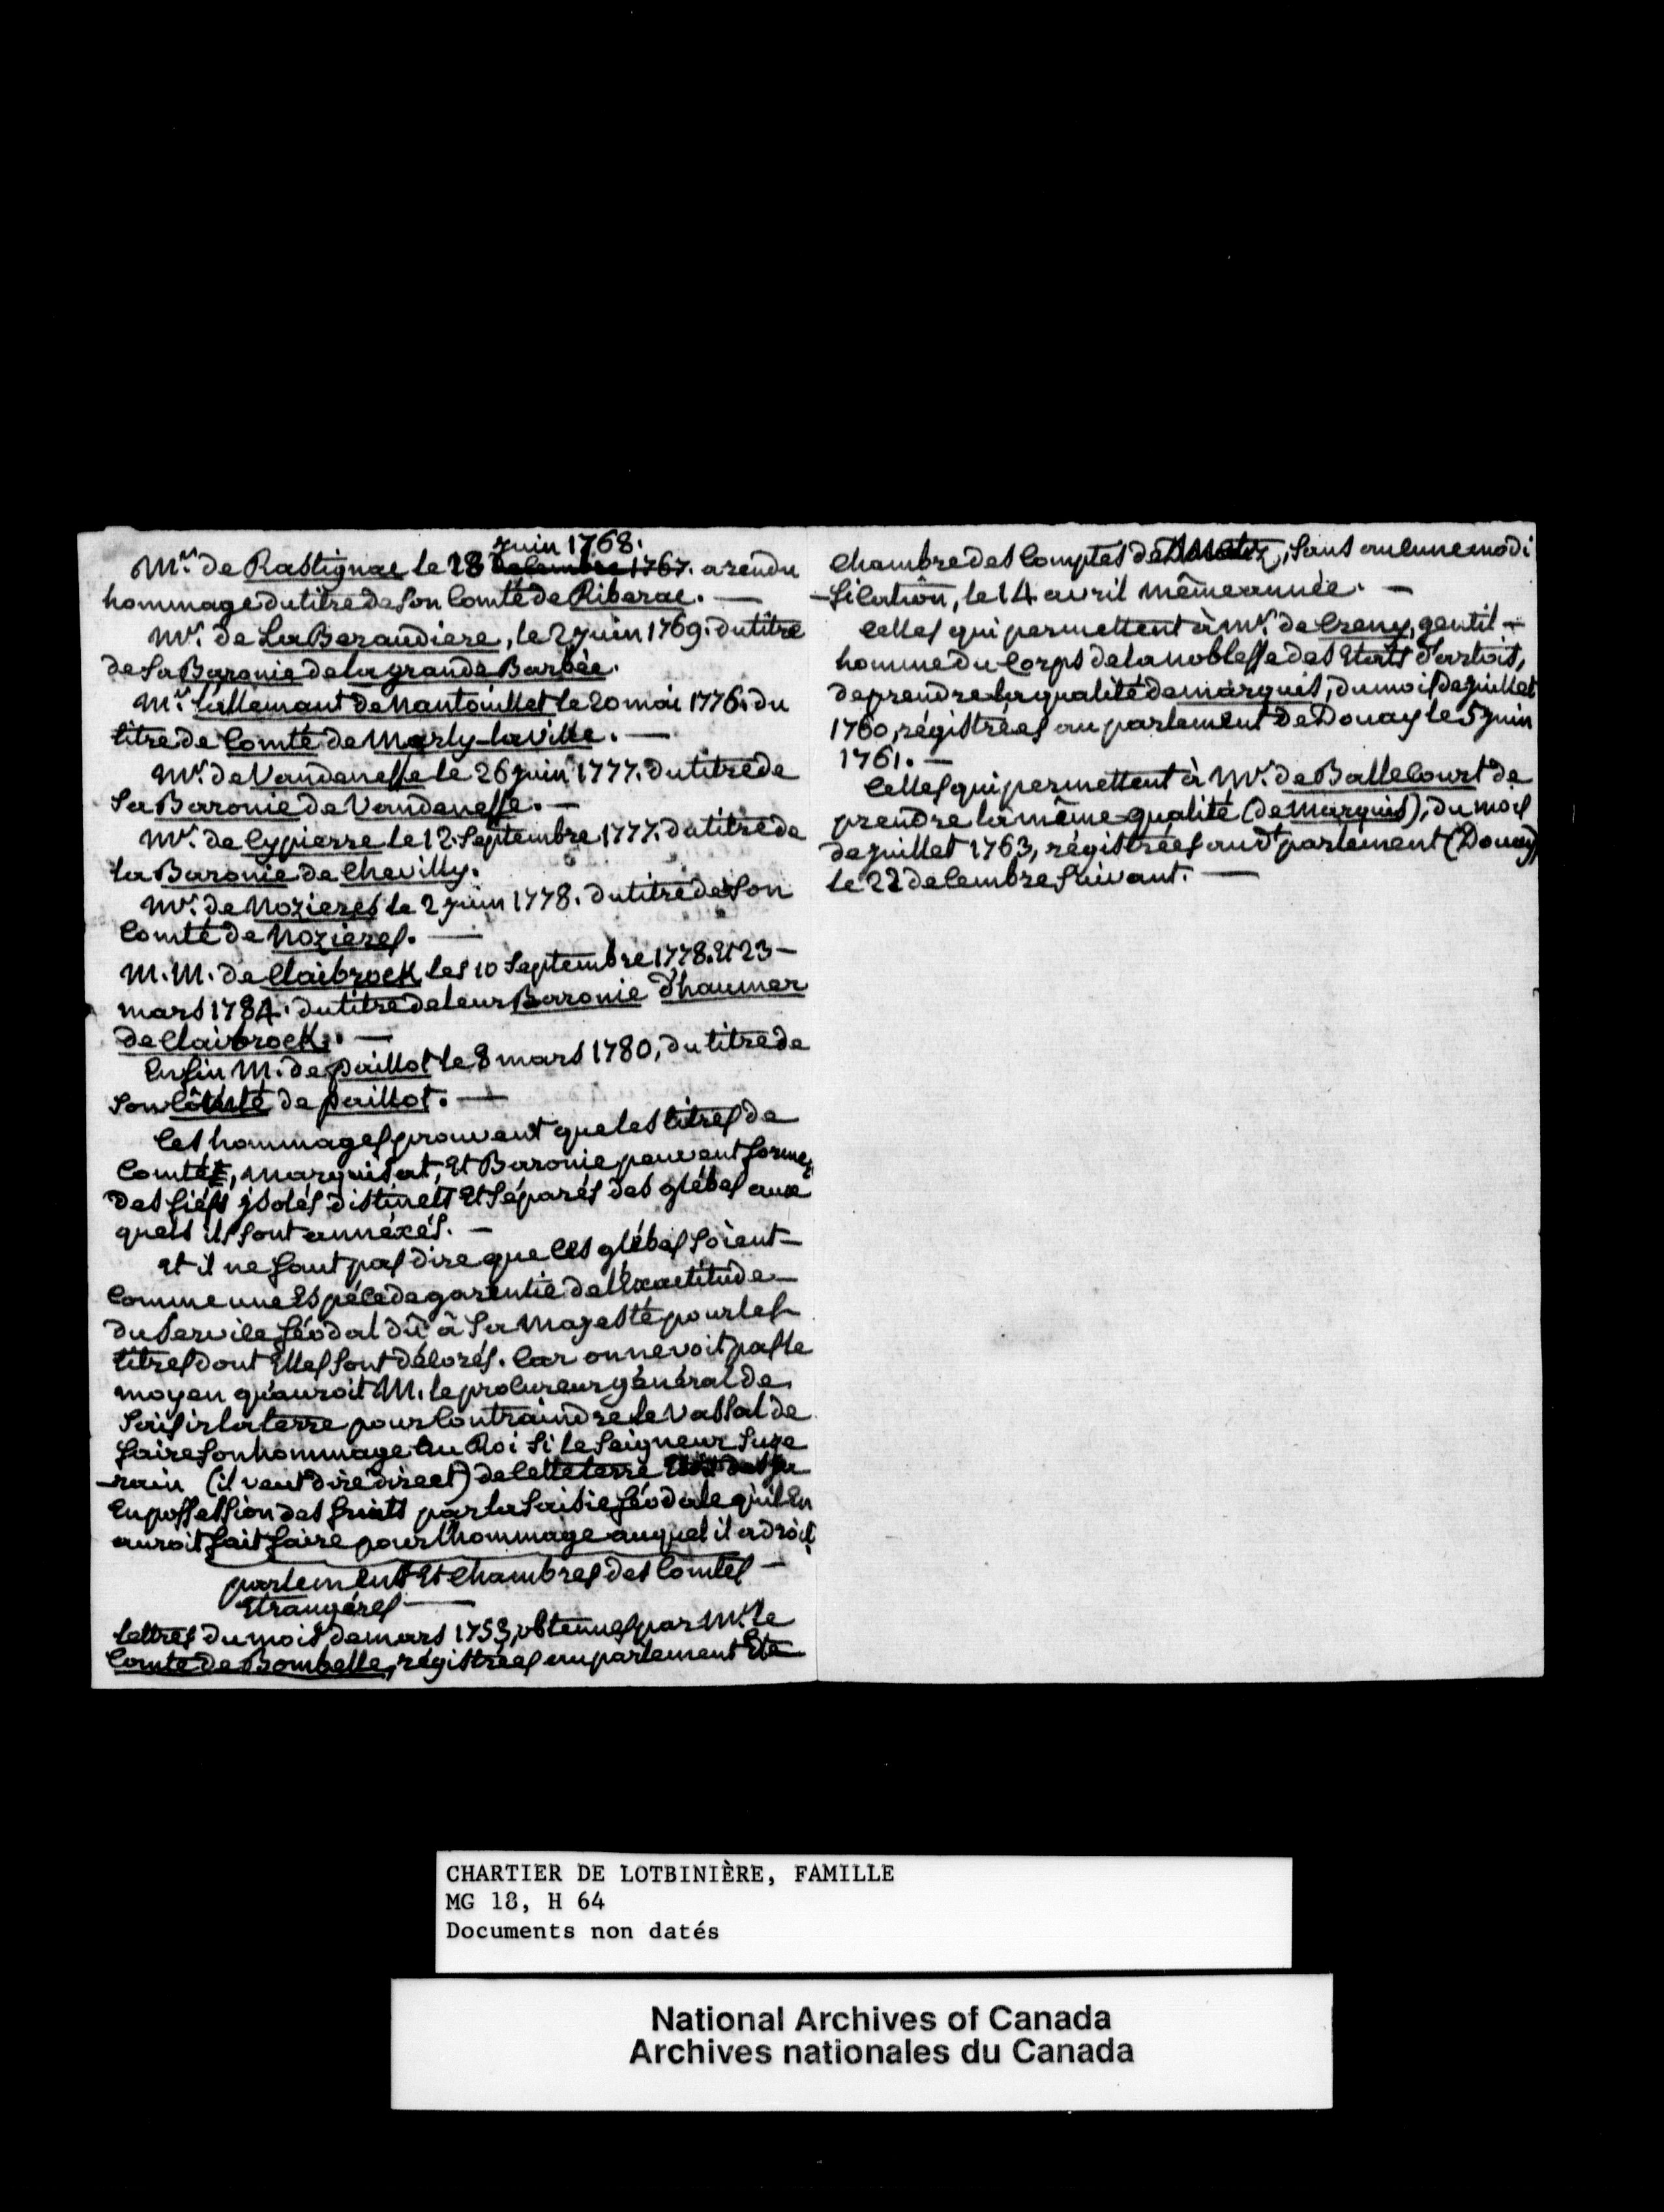 juin 1768.
Mr. de Rastignac le 28 Decembre 1767. a rendu
hommage du titre de son Comté de Riberac. —
Mr. de La Beraudiere, le 2 juin 1769. du titre
de sa Baronie de la grande Barbée.
Mr. Lallemant de Nantouillet le 20 mai 1776. du
titre de Comté de Marly-la ville. —
Mr. de Vandenesse le 26 juin 1777. du titre de
sa Baronie de Vandenesse. —
Mr. de Cypierre le 12. Septembre 1777. du titre de
la Baronie de Chevilly.
Mr. de Nozieres le 2 juin 1778. du titre de son
Comté de Nozieres. —
M.M. de Claibroek les 10 Septembre 1778. Et 23 —
mars 1784. du titre de leur Baronie d'haumer
de Claibroek. —
Enfin M. de paillot le 8 mars 1780, du titre de
son Cômté de paillot. —
Ces hommages prouvent que les titres de
Comté, Marquisat, Et Baronie peuvent former
des fiéfs isolés distincts Et séparés des glébes aux
quels ils sont annéxés. —
Et il ne faut pas dire que ces glébes soient —
Comme une Espéce de garentie de l'Exactitude —
du service féodal dû à Sa Majesté pour les
titres dont Elles sont décorés. Car on ne voit pas le
moyen qu'auroit M. le procureur général de
saisir la terre pour Contraindre le Vassal de
faire son hommage Au Roi si le Seigneur Suze
-rain (il veut dire direct) de cette terre
En possession des fruits par la saisie féodale qu'il En
auroit fait faire pour l'hommage auquel il a droit
parlement Et Chambres des Comtes —
Etrangéres —
Lettres du mois de mars 1753, obtenues par Mr. le
Comte de Bombelle, régistrées au parlement Et a
Chambre des Comptes de Metz, sans aucune modi
-fication, le 14 avril même année. —
Celles qui permettent à Mr. de Creny, gentil —
homme du Corps de la noblesse des Etats d'artois,
de prendre la qualité de marquis, du mois de juillet
1760, régistrées au parlement de Douay le 5 juin
1761. —
Celles qui permettent à Mr. de Ballecourt de
prendre la même qualité (de Marquis), du mois
de juillet 1763, régistrées aud.t parlement (Douay)
le 22 decembre suivant. —
CHARTIER DE LOTBINIÈRE, FAMILLE
MG 18, H 64
Documents non datés
National Archives of Canada
Archives nationales du Canada